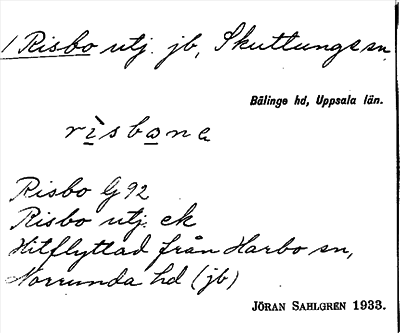 1 Risbo utj. jb, Skuttunge sn
Bälinge hd, Uppsala län.
risbona
Risbo G 92
Risbo utj. ek
Hitflyttad från Harbo sn,
Norrunda hd (jb)
JÖRAN SAHLGREN 1933.